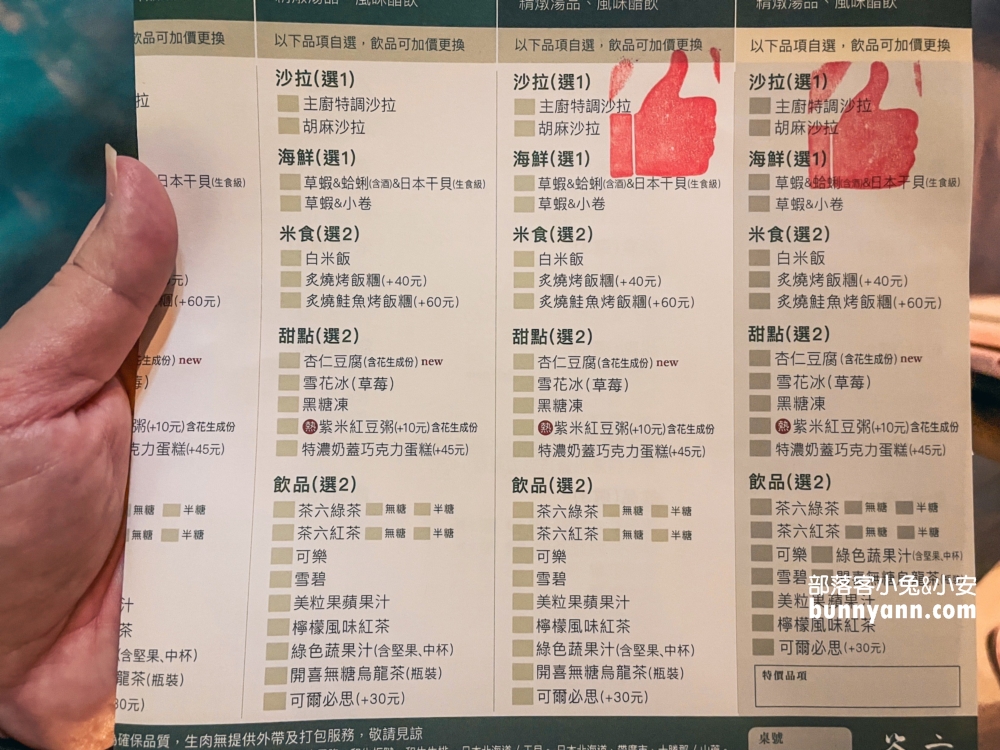 精燉湯品、風味醋飲
飲品可加價更換
拉
日本干貝(生食級)
元)
糰(+60元)
花生成份) new
莓)
粥(+10元)含花生成份
克力蛋糕(+45元)
無糖 半糖
無糖 半糖
汁
茶
(含堅果、中杯)
龍茶(瓶裝)
30元)
精燉湯品、風味醋飲
以下品項自選，飲品可加價更換
沙拉(選1)
主廚特調沙拉
胡麻沙拉
海鮮(選1)
草蝦&蛤蜊(含酒)&日本干貝(生食級)
草蝦&小卷
米食(選2)
白米飯
炙燒烤飯糰(+40元)
炙燒鮭魚烤飯糰(+60元)
甜點(選2)
杏仁豆腐(含花生成份) new
雪花冰(草莓)
黑糖凍
熱 紫米紅豆粥(+10元)含花生成份
特濃奶蓋巧克力蛋糕(+45元)
飲品(選2)
茶六綠茶 無糖 半糖
茶六紅茶 無糖 半糖
可樂
雪碧
美粒果蘋果汁
檸檬風味紅茶
綠色蔬果汁(含堅果、中杯)
開喜無糖烏龍茶(瓶裝)
可爾必思(+30元)
精燉湯品、風味醋飲
以下品項自選，飲品可加價更換
沙拉(選1)
主廚特調沙拉
胡麻沙拉
海鮮(選1)
草蝦&蛤蜊(含酒)&日本干貝(生食級)
草蝦&小卷
米食(選2)
白米飯
炙燒烤飯糰(+40元)
炙燒鮭魚烤飯糰(+60元)
甜點(選2)
杏仁豆腐(含花生成份) new
雪花冰(草莓)
黑糖凍
熱 紫米紅豆粥(+10元)含花生成份
特濃奶蓋巧克力蛋糕(+45元)
飲品(選2)
茶六綠茶 無糖 半糖
茶六紅茶 無糖 半糖
可樂
雪碧
美粒果蘋果汁
檸檬風味紅茶
綠色蔬果汁(含堅果、中杯)
開喜無糖烏龍茶(瓶裝)
可爾必思(+30元)
精燉湯品、風味醋飲
以下品項自選，飲品可加價更換
沙拉(選1)
主廚特調沙拉
胡麻沙拉
海鮮(選1)
草蝦&蛤蜊(含酒)&日本干貝(生食級)
草蝦&小卷
米食(選2)
白米飯
炙燒烤飯糰(+40元)
炙燒鮭魚烤飯糰(+60元)
甜點(選2)
杏仁豆腐(含花生成份) new
雪花冰(草莓)
黑糖凍
熱 紫米紅豆粥(+10元)含花生成份
特濃奶蓋巧克力蛋糕(+45元)
飲品(選2)
茶六綠茶 無糖 半糖
茶六紅茶 無糖 半糖
可樂 綠色蔬果汁(含堅果、中杯)
雪碧 開喜無糖烏龍茶
美粒果蘋果汁
檸檬風味紅茶
可爾必思(+30元)
特價品項
部落客小兔&小安
bunnyann.com
確保品質，生肉無提供外帶及打包服務，敬請見諒
桌號
茶六